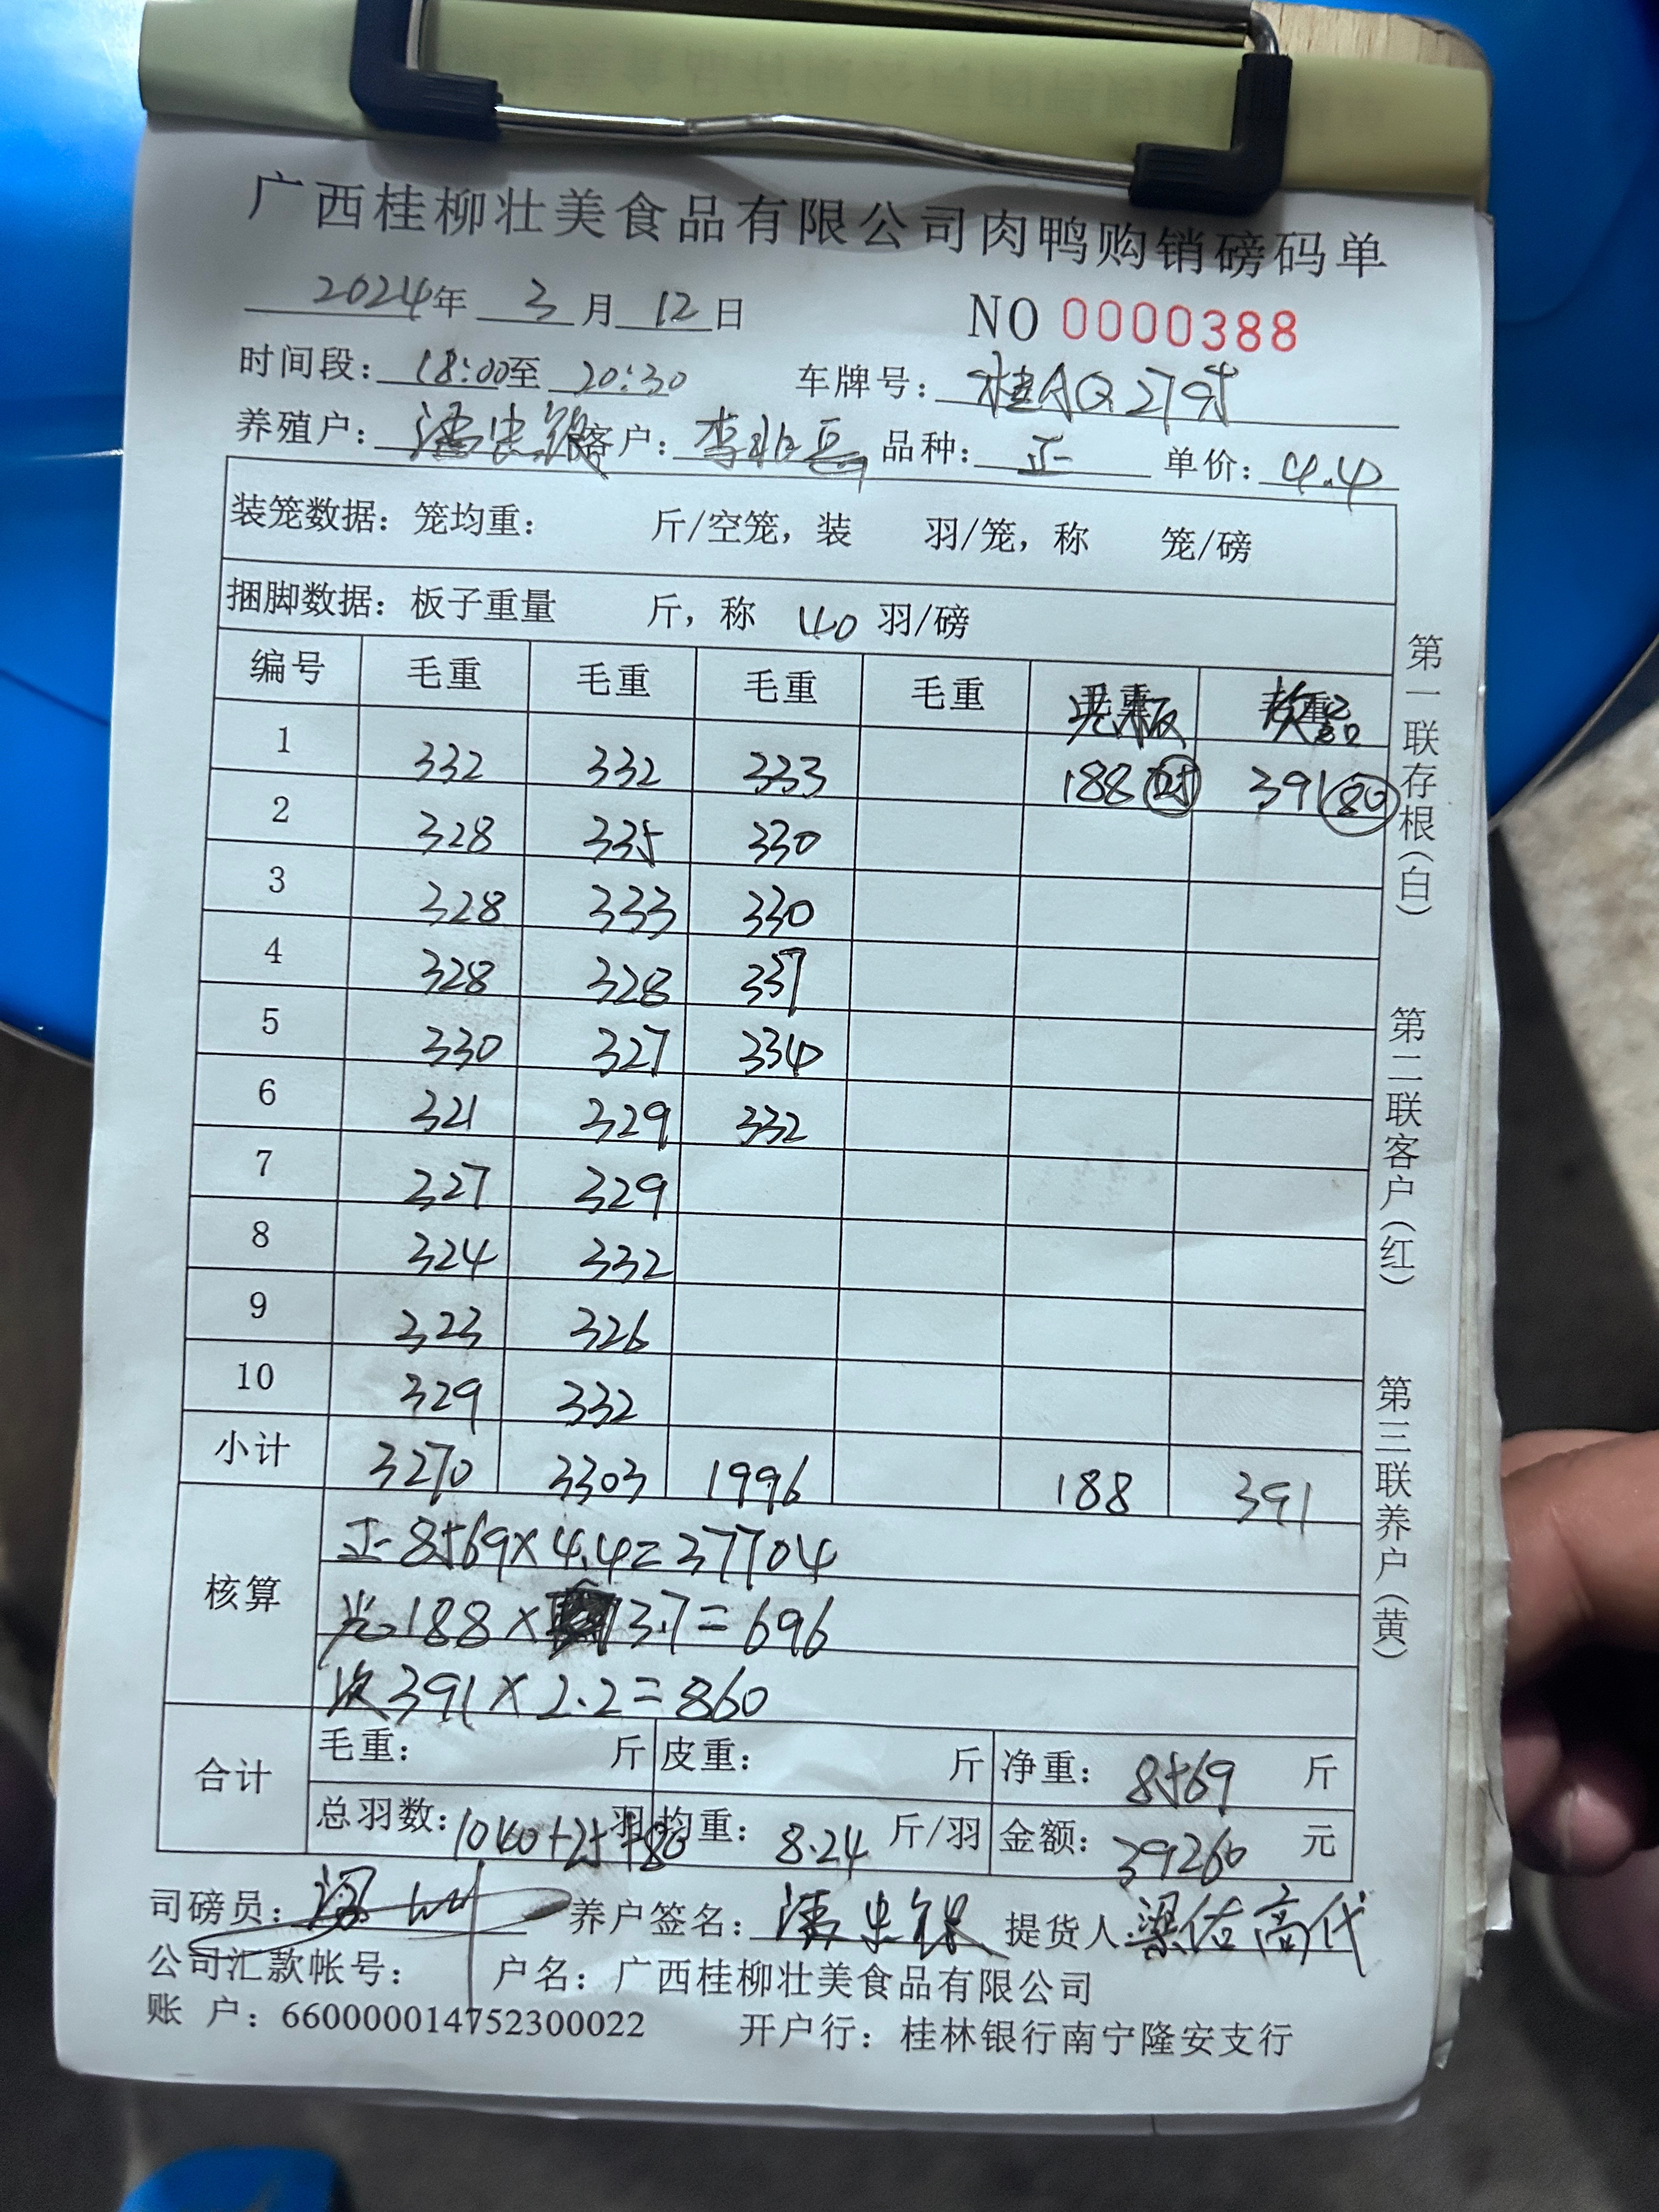 广西桂柳壮美食品有限公司肉鸭购销磅码单
2024年 3 月 12 日 NO 0000388
时间段: 18:00至 20:30 车牌号: 桂AQ279
养殖户: 潘忠银 客户: 李 品种: 正 单价: 4.4
装笼数据: 笼均重: 斤/空笼, 装 羽/笼, 称 笼/磅
捆脚数据: 板子重量 斤, 称 40 羽/磅
编号 毛重 毛重 毛重 毛重 光板 次品
1 332 332 333 188 25 391 80
2 328 335 330
3 328 333 330
4 328 328 337
5 330 327 334
6 321 329 332
7 327 329
8 324 332
9 323 326
10 329 332
小计 3270 3303 1996 188 391
核算
正 8569×4.4=37704
光 188×3.7=696
次 391×2.2=860
合计
毛重: 斤 皮重: 斤 净重: 8569 斤
总羽数: 1040+25+80 羽 均重: 8.24 斤/羽 金额: 39260 元
司磅员: 养户签名: 潘忠银 提货人: 梁佑高代
公司汇款帐号: 户名: 广西桂柳壮美食品有限公司
账 户: 660000014752300022 开户行: 桂林银行南宁隆安支行
第一联存根(白)
第二联客户(红)
第三联养户(黄)